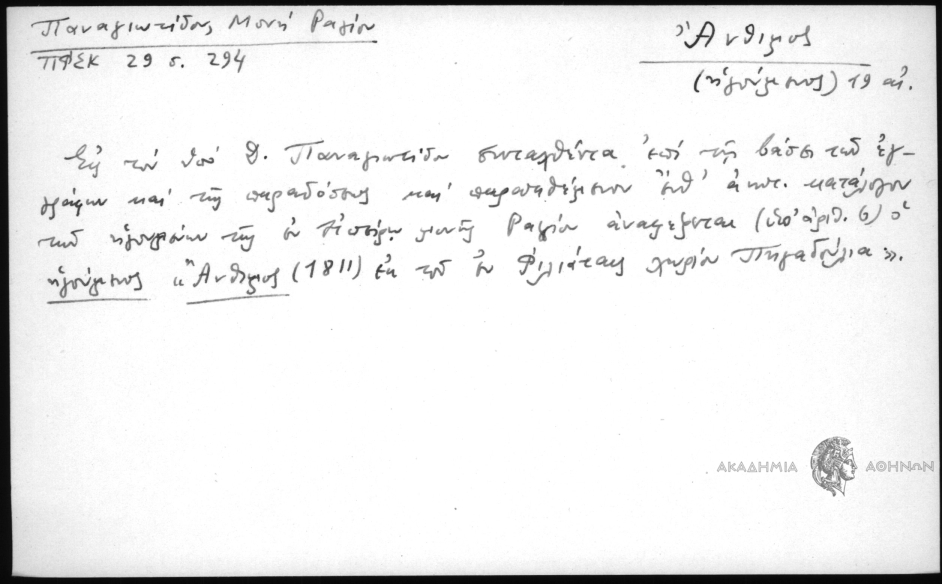 Παναγιωτίδου Μονή Ραγίου
ΠΦΣΚ 29 σ. 294
Ἄνθιμος
(ἡγούμενος) 19 αἰ.
Εἰς τὸν ὑπὸ Θ. Παναγιωτίδου συνταχθέντα ἐπὶ τῇ βάσει τῶν ἐγ-
γράφων καὶ τῆς παραδόσεως καὶ παρατιθέμενον ἐνθ' ἀνωτ. κατάλογον
τῶν ἡγουμένων τῆς ἐν Ἠπείρῳ μονῆς Ραγίου ἀναφέρεται (ὑπ' ἀριθ. 6) ὁ
ἡγούμενος "Ἄνθιμος (1811) ἐκ τοῦ ἐν Φιλιάταις χωρίου Πηγαδούλια».
ΑΚΑΔΗΜΙΑ ΑΘΗΝΩΝ